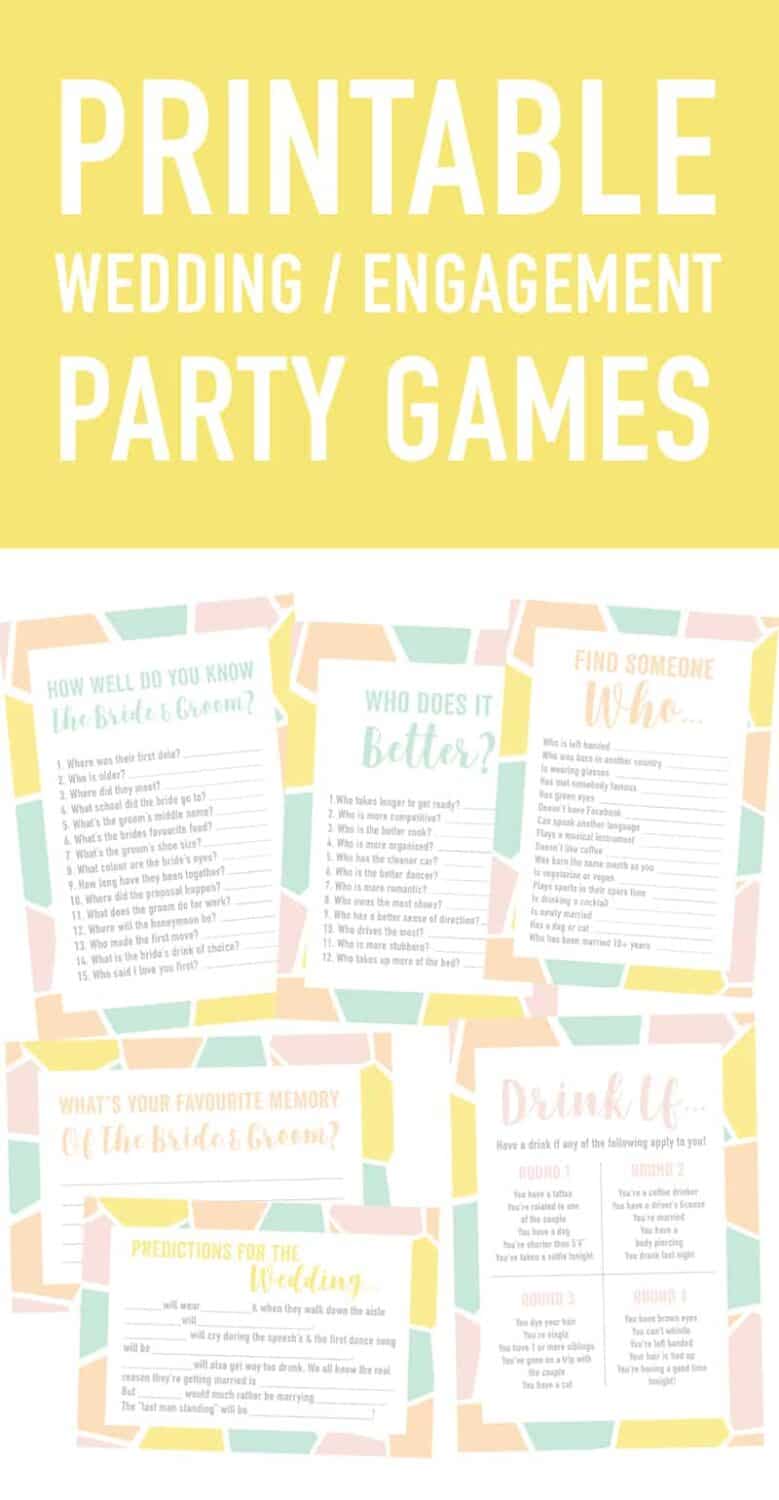 PRINTABLE
WEDDING / ENGAGEMENT
PARTY GAMES
HOW WELL DO YOU KNOW
the Bride & Groom?
1. Where was their first date?
2. Who is older?
3. Where did they meet?
4. What school did the bride go to?
5. What's the groom's middle name?
6. What's the brides favourite food?
7. What's the groom's shoe size?
8. What colour are the bride's eyes?
9. How long have they been together?
10. Where did the proposal happen?
11. What does the groom do for work?
12. Where will the honeymoon be?
13. Who made the first move?
14. What is the bride's drink of choice?
15. Who said I love you first?
WHO DOES IT
Better?
1. Who takes longer to get ready?
2. Who is more competitive?
3. Who is the better cook?
4. Who is more organised?
5. Who has the cleaner car?
6. Who is the better dancer?
7. Who is more romantic?
8. Who owns the most shoes?
9. Who has a better sense of direction?
10. Who drives the most?
11. Who is more stubborn?
12. Who takes up more of the bed?
FIND SOMEONE
Who...
Who is left handed
Who was born in another country
Is wearing glasses
Has met somebody famous
Has green eyes
Doesn't have Facebook
Can speak another language
Plays a musical instrument
Doesn't like coffee
Was born the same month as you
Is vegetarian or vegan
Plays sports in their spare time
Is drinking a cocktail
Is newly married
Has a dog or cat
Who has been married 10+ years
WHAT'S YOUR FAVOURITE MEMORY
Of the Bride & Groom?
PREDICTIONS FOR THE
Wedding...
will wear & when they walk down the aisle
will
will cry during the speech's & the first dance song
will be
will also get way too drunk. We all know the real
reason they're getting married is
But would much rather be marrying
The "last man standing" will be !
Drink If...
Have a drink if any of the following apply to you!
ROUND 1
You have a tattoo
You're related to one
of the couple
You have a dog
You're shorter than 5'4"
You've taken a selfie tonight
ROUND 2
You're a coffee drinker
You have a driver's license
You're married
You have a
body piercing
You drank last night
ROUND 3
You dye your hair
You're single
You have 1 or more siblings
You've gone on a trip with
the couple
You have a cat
ROUND 4
You have brown eyes
You can't whistle
You're left handed
Your hair is tied up
You're having a good time
tonight!